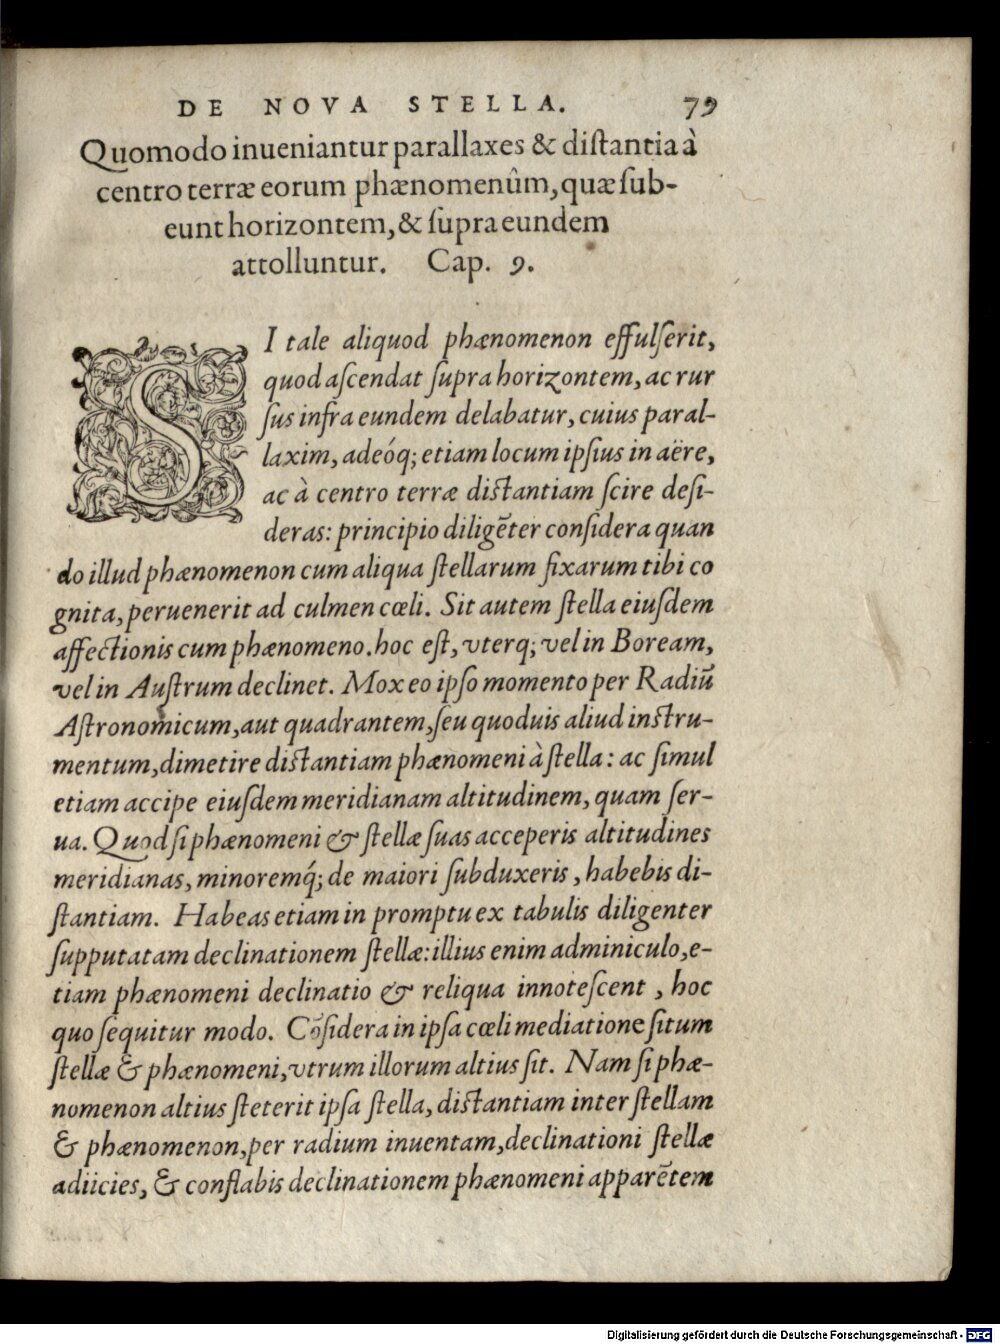 DE NOVA STELLA. 79
Quomodo inueniantur parallaxes & diſtantia à
centro terræ eorum phænomenûm, quæ ſub-
eunt horizontem, & ſupra eundem
attolluntur. Cap. 9.
SI tale aliquod phænomenon effulſerit,
quod aſcendat ſupra horizontem, ac rur
ſus infra eundem delabatur, cuius paral-
laxim, adeóq; etiam locum ipſius in aëre,
ac à centro terræ diſtantiam ſcire deſi-
deras: principio diligẽter conſidera quan
do illud phænomenon cum aliqua ſtellarum fixarum tibi co
gnita, peruenerit ad culmen cœli. Sit autem ſtella eiuſdem
affectionis cum phænomeno. hoc eſt, vterq; vel in Boream,
vel in Auſtrum declinet. Mox eo ipſo momento per Radiũ
Aſtronomicum, aut quadrantem, ſeu quoduis aliud inſtru-
mentum, dimetire diſtantiam phænomeni à ſtella: ac ſimul
etiam accipe eiuſdem meridianam altitudinem, quam ſer-
ua. Quod ſi phænomeni & ſtellæ ſuas acceperis altitudines
meridianas, minoremq́; de maiori ſubduxeris, habebis di-
ſtantiam. Habeas etiam in promptu ex tabulis diligenter
ſupputatam declinationem ſtellæ: illius enim adminiculo, e-
tiam phænomeni declinatio & reliqua innoteſcent, hoc
quo ſequitur modo. Cõſidera in ipſa cœli mediatione ſitum
ſtellæ & phænomeni, vtrum illorum altius ſit. Nam ſi phæ-
nomenon altius ſteterit ipſa ſtella, diſtantiam inter ſtellam
& phænomenon, per radium inuentam, declinationi ſtellæ
adiicies, & conflabis declinationem phænomeni apparẽtem
Digitalisierung gefördert durch die Deutsche Forschungsgemeinschaft - DFG